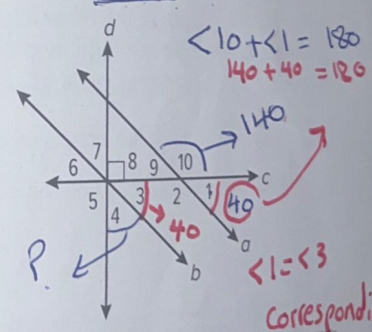 d
<10+<1 = 180
140 + 40 = 180
140
7
8
9
10
6
c
5
4
3
2
1
40
40
a
b
?
<1 = <3
Correspondi